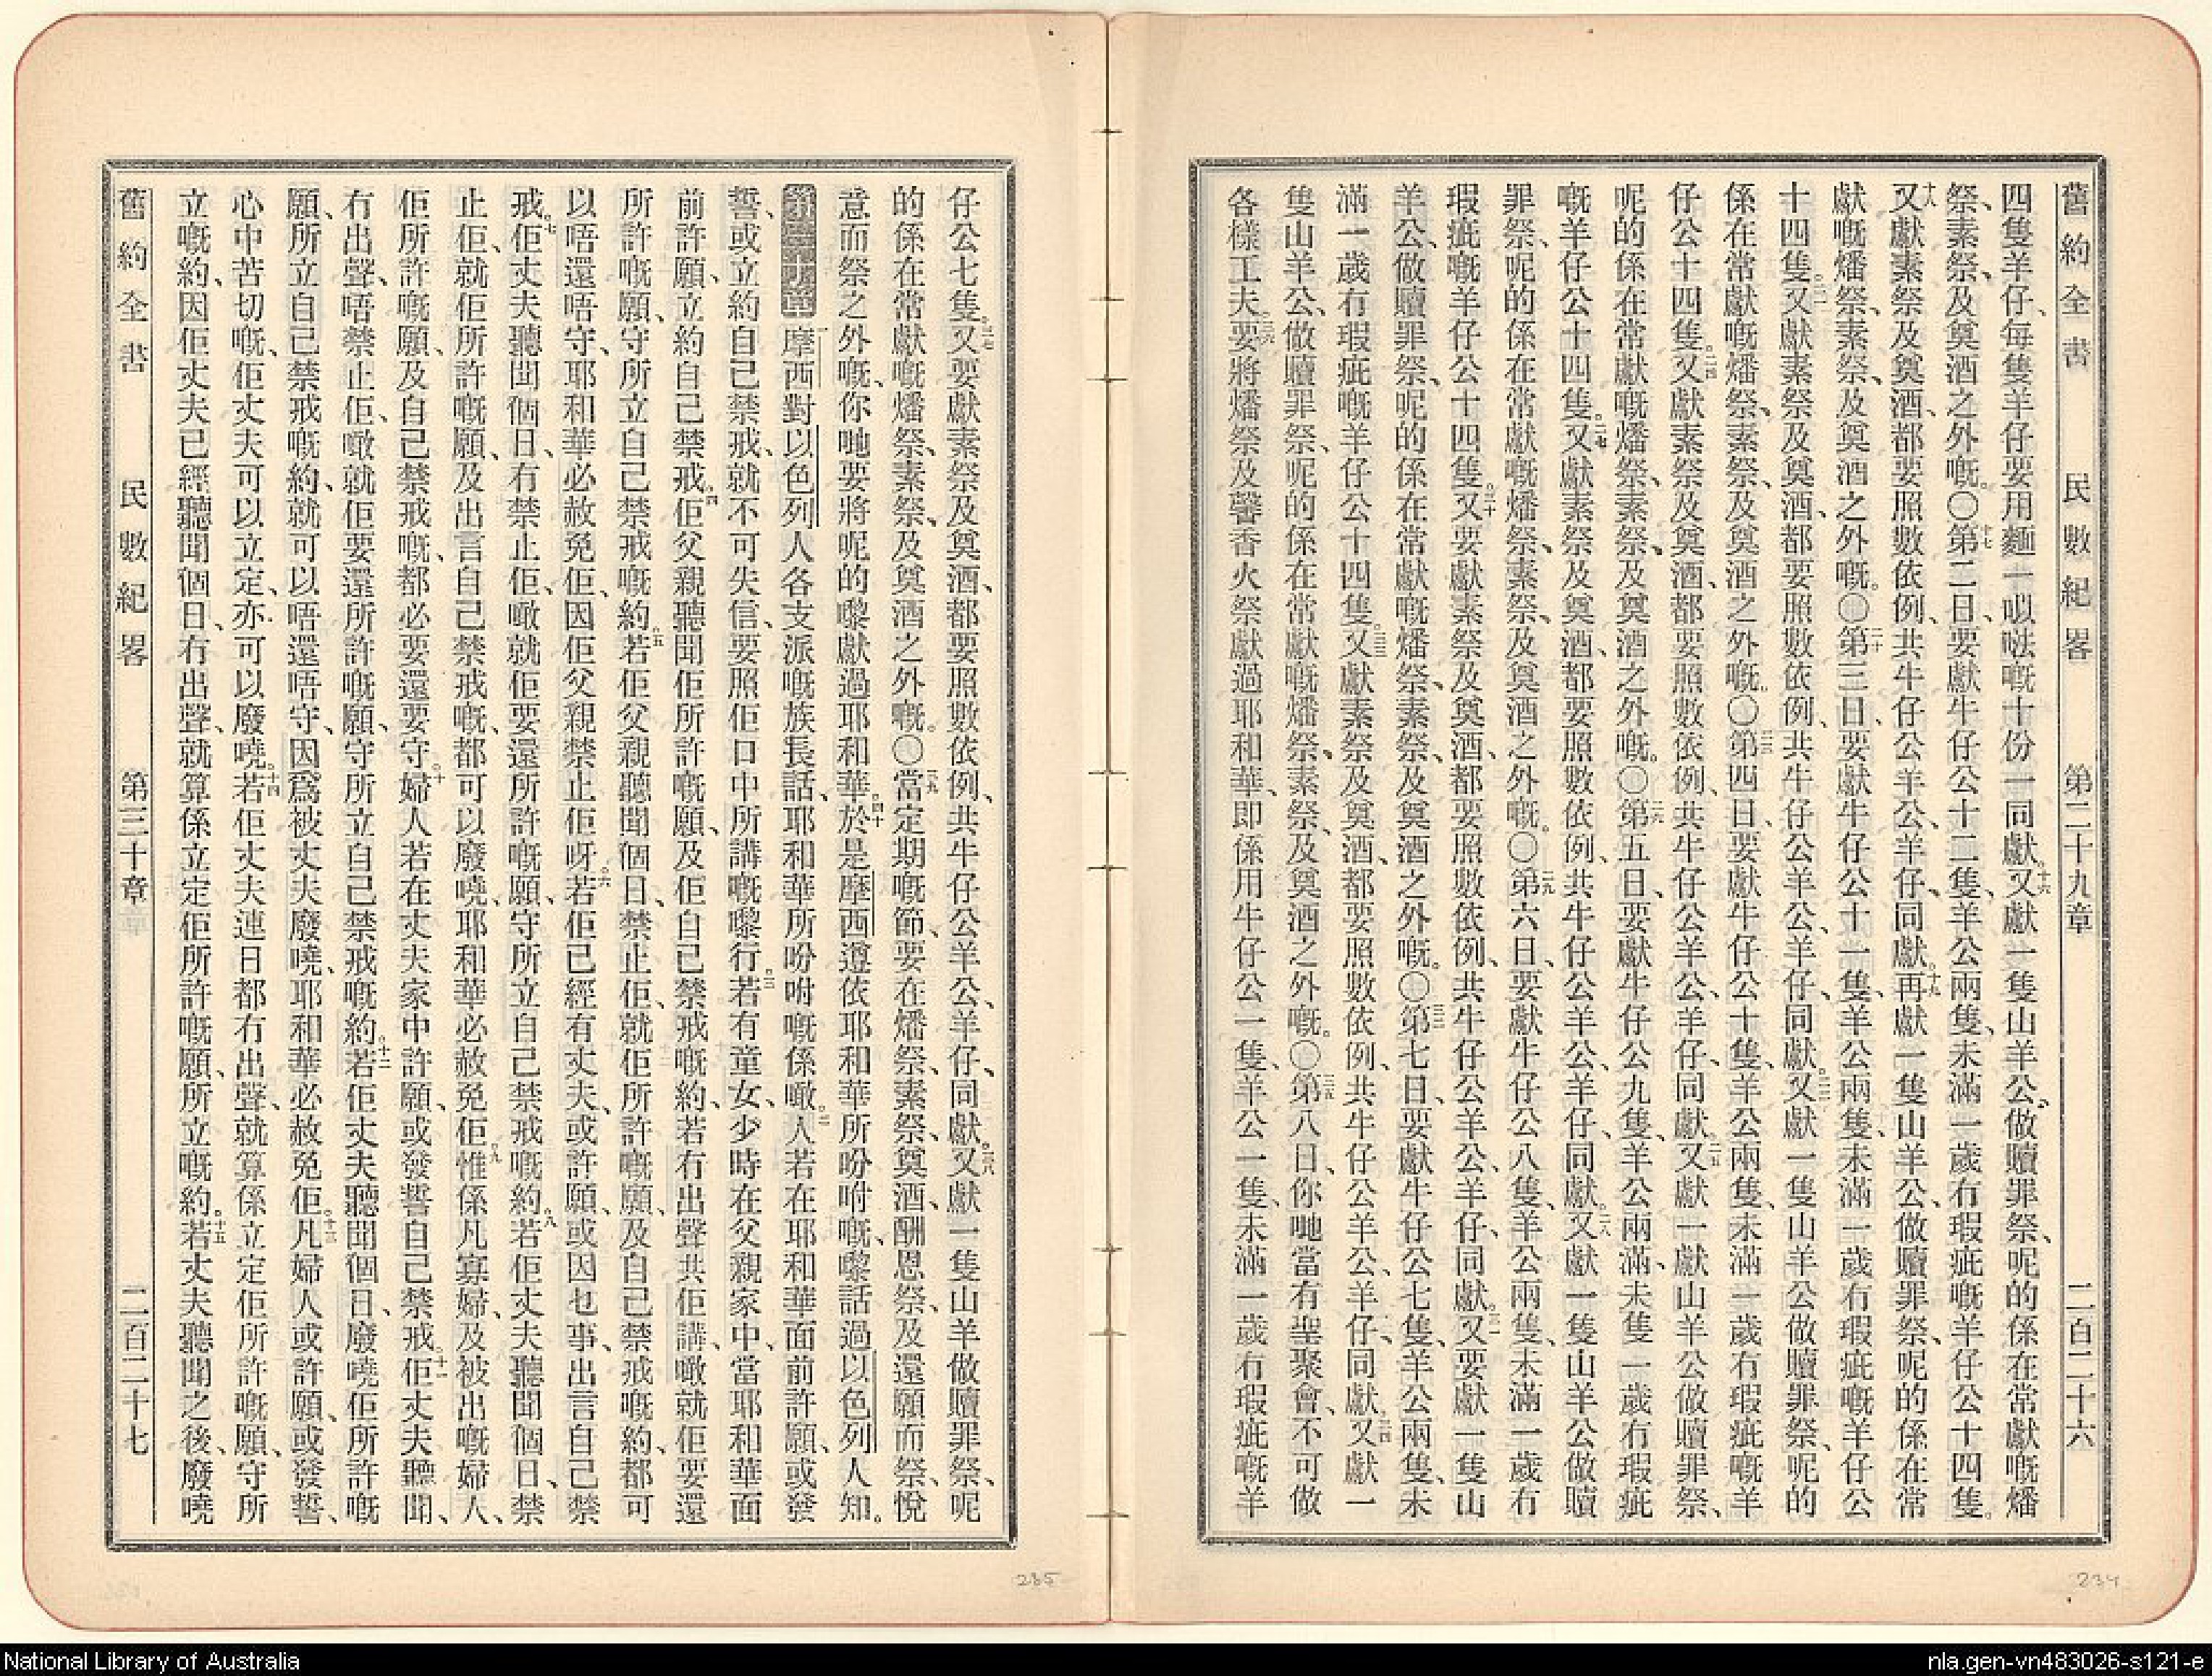 舊約全書 民數紀畧 第二十九章 二百二十六
四隻羊仔、每隻羊仔要用麵一㕥𠸉嘅十份一同獻。十六又獻一隻山羊公、做贖罪祭、呢的係在常獻嘅燔
祭、素祭、及奠酒之外嘅。〇十七第二日、要獻牛仔公十二隻、羊公兩隻、未滿一歲冇瑕疵嘅羊仔公十四隻。
十八又獻素祭及奠酒、都要照數依例、共牛仔公羊公、羊仔、同獻。十九再獻一隻山羊公、做贖罪祭、呢的係在常
獻嘅燔祭、素祭、及奠酒之外嘅。〇二十第三日、要獻牛仔公十一隻、羊公兩隻、未滿一歲冇瑕疵嘅羊仔公
十四隻。二一又獻素祭及奠酒、都要照數依例、共牛仔公羊公、羊仔、同獻。二二又獻一隻山羊公做贖罪祭、呢的
係在常獻嘅燔祭、素祭、及奠酒之外嘅。〇二三第四日、要獻牛仔公十隻、羊公兩隻、未滿一歲冇瑕疵嘅羊
仔公十四隻。二四又獻素祭及奠酒、都要照數依例、共牛仔公羊公、羊仔、同獻。二五又獻一獻山羊公做贖罪祭、
呢的係在常獻嘅燔祭、素祭、及奠酒之外嘅。〇二六第五日、要獻牛仔公九隻、羊公兩滿、未隻一歲冇瑕疵
嘅羊仔公十四隻。二七又獻素祭及奠酒、都要照數依例、共牛仔公羊公、羊仔、同獻。二八又獻一隻山羊公做贖
罪祭、呢的係在常獻嘅燔祭、素祭、及奠酒之外嘅。〇二九第六日、要獻牛仔公八隻、羊公兩隻、未滿一歲冇
瑕疵嘅羊仔公十四隻。三十又要獻素祭及奠酒、都要照數依例、共牛仔公羊公、羊仔、同獻。三一又要獻一隻山
羊公、做贖罪祭、呢的係在常獻嘅燔祭、素祭、及奠酒之外嘅。〇三二第七日、要獻牛仔公七隻、羊公兩隻、未
滿一歲冇瑕疵嘅羊仔公十四隻。三三又獻素祭及奠酒、都要照數依例、共牛仔公羊公、羊仔、同獻、三四又獻一
隻山羊公、做贖罪祭、呢的係在常獻嘅燔祭、素祭、及奠酒之外嘅。〇三五第八日、你哋當有聖聚會、不可做
各樣工夫。三六要將燔祭及馨香火祭獻過耶和華、即係用牛仔公一隻、羊公一隻、未滿一歲冇瑕疵嘅羊
仔公七隻。三七又要獻素祭及奠酒、都要照數依例、共牛仔公羊公、羊仔、同獻。三八又獻一隻山羊做贖罪祭、呢
的係在常獻嘅燔祭、素祭、及奠酒之外嘅。〇三九當定期嘅節、要在燔祭、素祭、奠酒、酬恩祭、及還願而祭、悅
意而祭之外嘅、你哋要將呢的嚟獻過耶和華。四十於是摩西遵依耶和華所吩咐嘅、嚟話過以色列人知。
第三十章 一摩西對以色列人各支派嘅族長話、耶和華所吩咐嘅係噉。二人若在耶和華面前許願、或發
誓、或立約自己禁戒、就不可失信、要照佢口中所講嘅嚟行。三若有童女、少時在父親家中、當耶和華面
前許願、立約自己禁戒。四佢父親聽聞佢所許嘅願、及佢自己禁戒嘅約、若冇出聲共佢講、噉就佢要還
所許嘅願、守所立自己禁戒嘅約。五若佢父親聽聞個日禁止佢、就佢所許嘅願、及自己禁戒嘅約、都可
以唔還唔守、耶和華必赦免佢、因佢父親禁止佢呀。六若佢已經有丈夫、或許願、或因乜事、出言自己禁
戒。七佢丈夫聽聞個日、冇禁止佢、噉就佢要還所許嘅願、守所立自己禁戒嘅約。八若佢丈夫聽聞個日、禁
止佢、就佢所許嘅願、及出言自己禁戒嘅、都可以廢曉、耶和華必赦免佢。九惟係凡寡婦、及被出嘅婦人、
佢所許嘅願、及自己禁戒嘅、都必要還要守。十婦人若在丈夫家中許願、或發誓自己禁戒。十一佢丈夫聽聞、
冇出聲、唔禁止佢、噉就佢要還所許嘅願、守所立自己禁戒嘅約。十二若佢丈夫聽聞個日、廢曉佢所許嘅
願、所立自己禁戒嘅約、就可以唔還唔守、因爲被丈夫廢曉、耶和華必赦免佢。十三凡婦人或許願、或發誓、
心中苦切嘅、佢丈夫可以立定、亦可以廢曉。十四若佢丈夫連日都冇出聲、就算係立定佢所許嘅願、守所
立嘅約、因佢丈夫已經聽聞個日、冇出聲、就算係立定佢所許嘅願、所立嘅約。十五若丈夫聽聞之後、廢曉
舊約全書 民數紀畧 第三十章 二百二十七
234
235
National Library of Australia
nla.gen-vn483026-s121-e